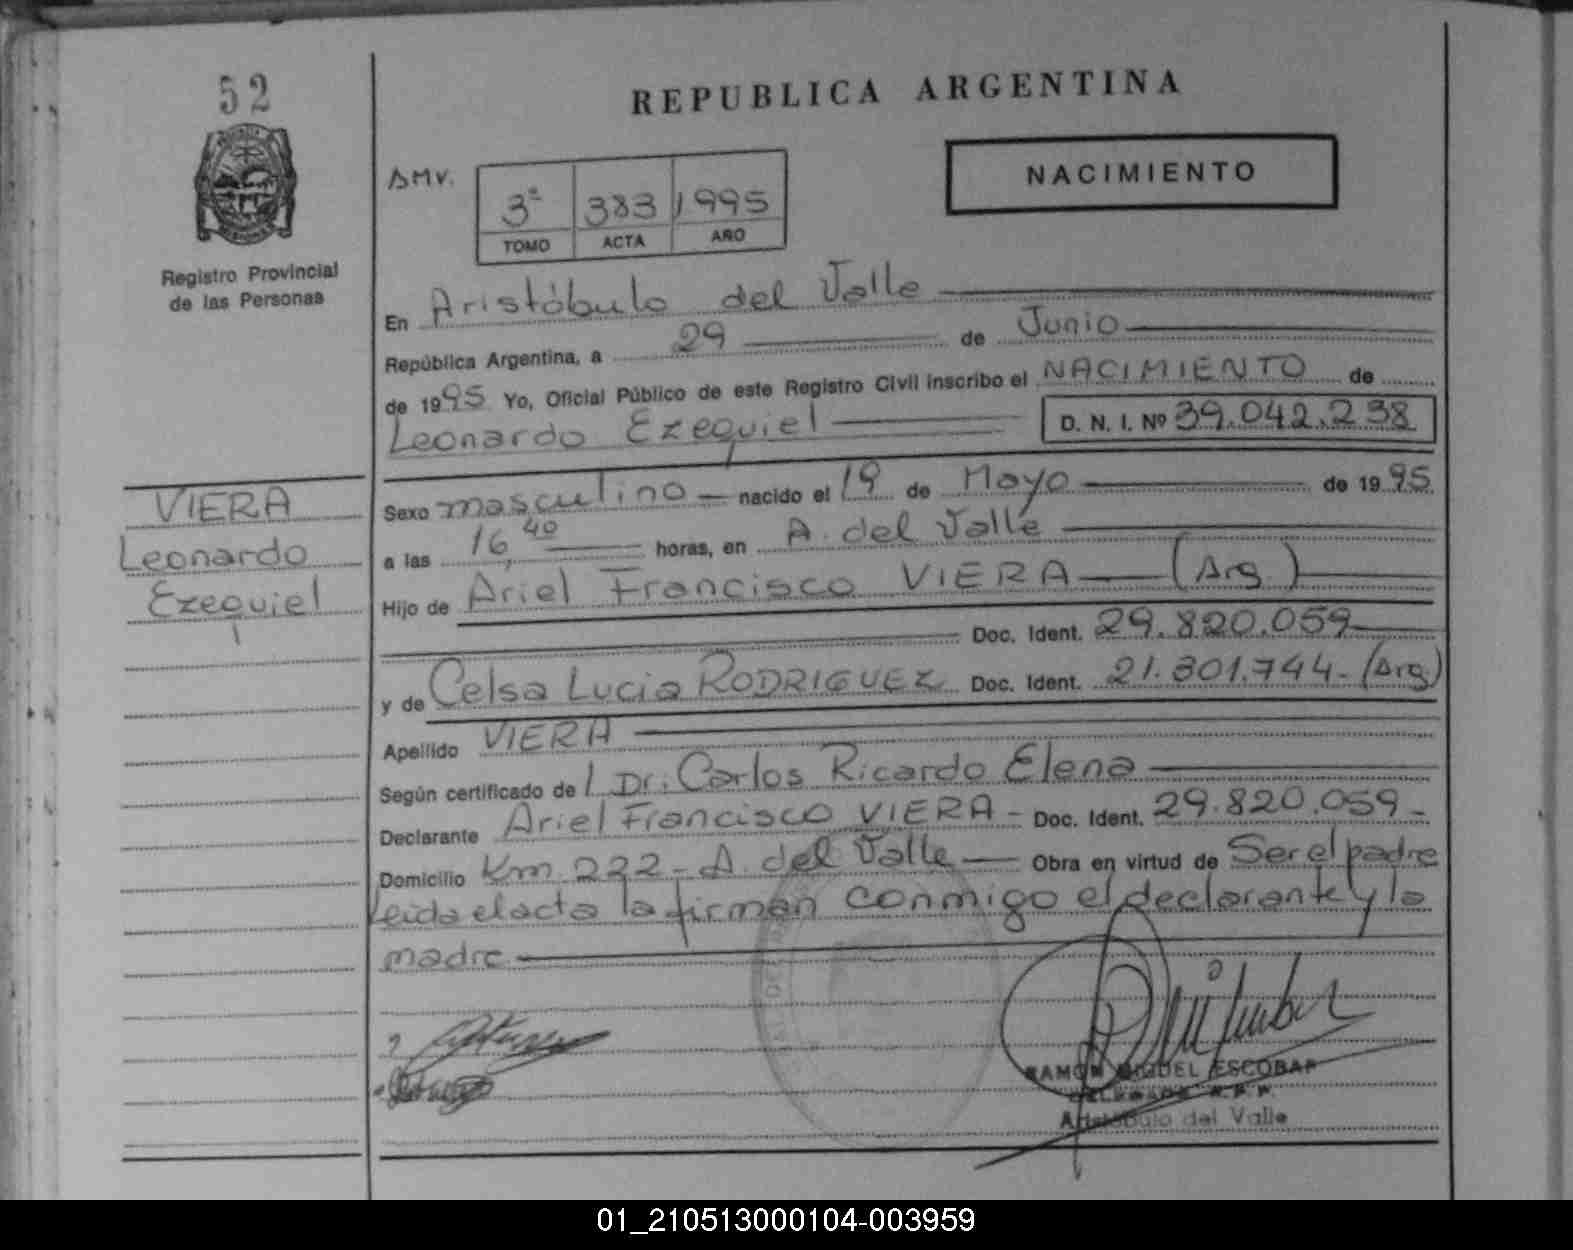 52
REPUBLICA ARGENTINA
NACIMIENTO
AMV.
3ª 383 1995
TOMO ACTA AÑO
Registro Provincial
de las Personas
En Aristóbulo del Valle
República Argentina, a 29 de Junio
de 1995 Yo, Oficial Público de este Registro Civil inscribo el NACIMIENTO de
Leonardo Ezequiel D. N. I. Nº 39.042.238
VIERA
Leonardo
Ezequiel
Sexo masculino nacido el 19 de Mayo de 1995
a las 16,40 horas, en A. del Valle
Hijo de Ariel Francisco VIERA (Arg.)
Doc. Ident. 29.820.059
y de Celsa Lucia RODRIGUEZ Doc. Ident. 21.301.744 - (Arg)
Apellido VIERA
Según certificado de l Dr. Carlos Ricardo Elena
Declarante Ariel Francisco VIERA - Doc. Ident. 29.820.059 -
Domicilio Km. 222 - A. del Valle Obra en virtud de Ser el padre
leida el acta la firman conmigo el declarante y la
madre
RAMON MIGUEL ESCOBAR
DELEGADO R.P.P.
Aristóbulo del Valle
01_210513000104-003959